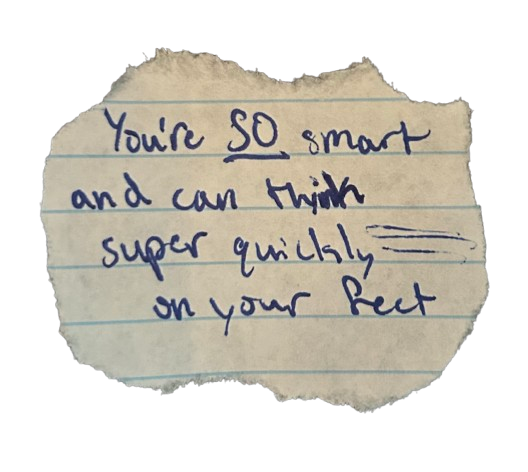 You're SO smart
and can think
super quickly
on your feet